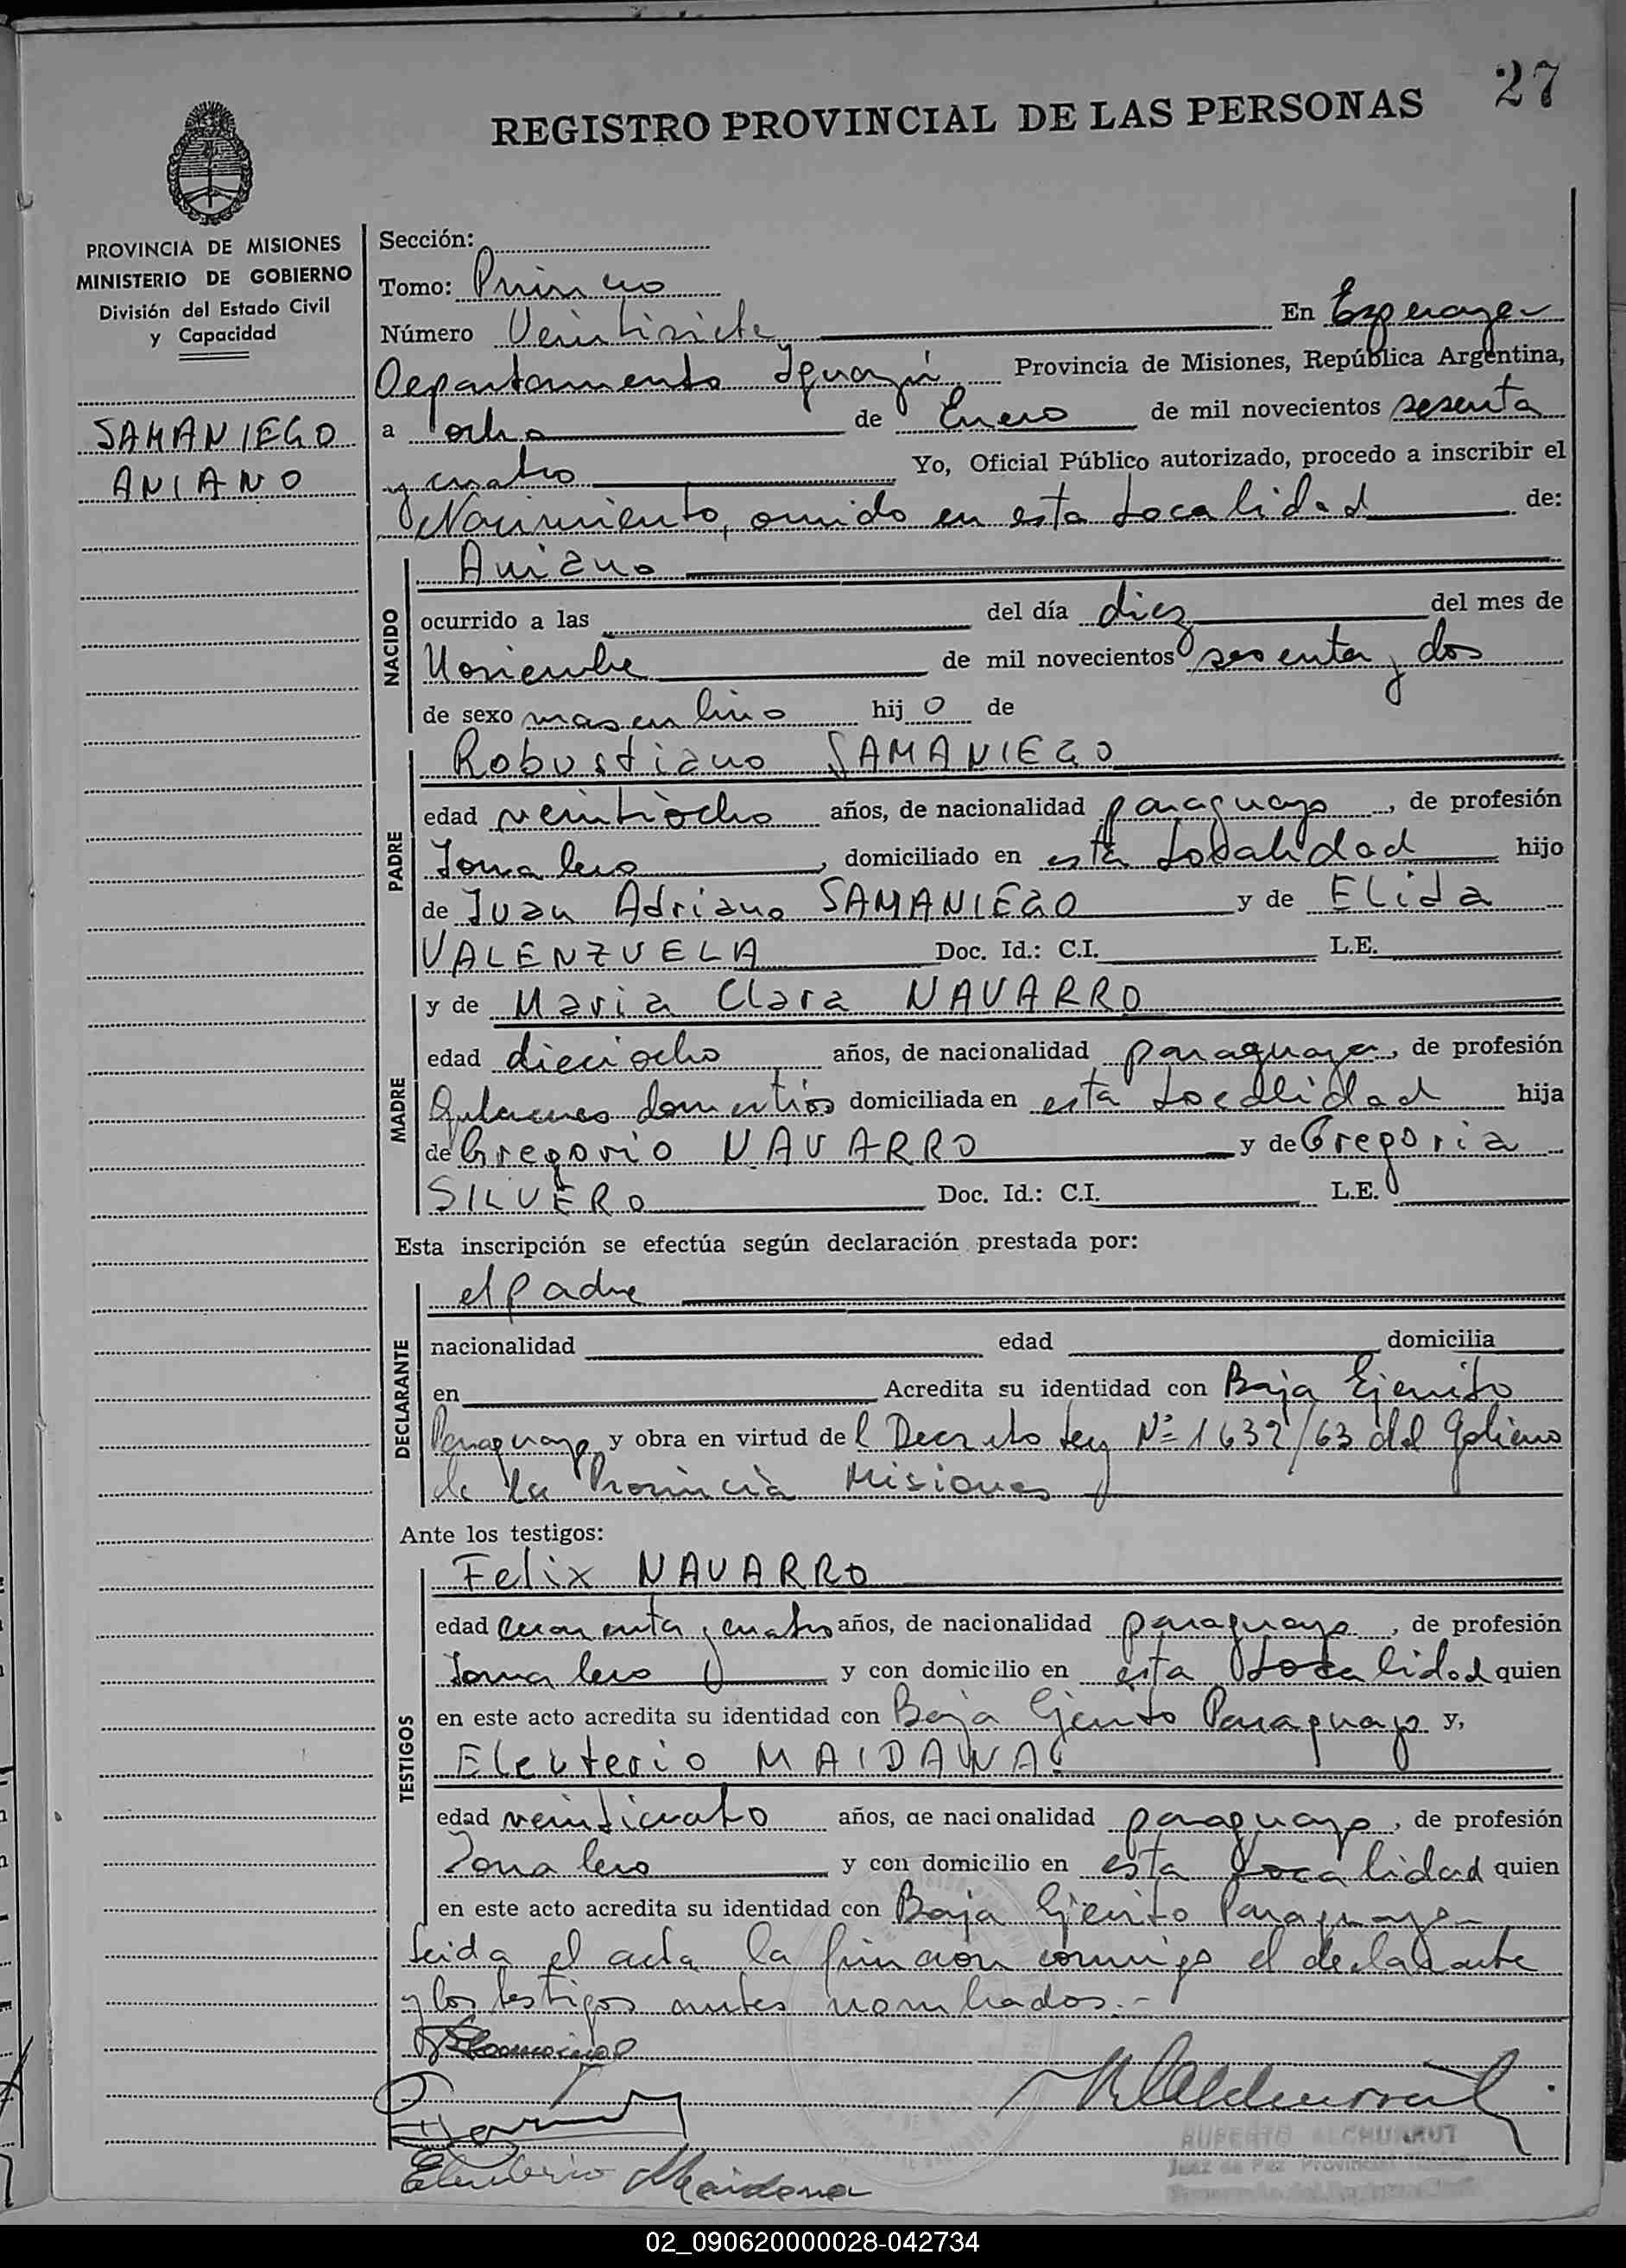 27
REGISTRO PROVINCIAL DE LAS PERSONAS
PROVINCIA DE MISIONES
MINISTERIO DE GOBIERNO
División del Estado Civil
y Capacidad
SAMANIEGO
ANIANO
Sección:
Tomo: Primero
Número Veintisiete En Esperanza
Departamento Iguazú Provincia de Misiones, República Argentina,
a ocho de Enero de mil novecientos sesenta
y cuatro Yo, Oficial Público autorizado, procedo a inscribir el
Nacimiento, ocurrido en esta Localidad de:
NACIDO
Aniano
ocurrido a las del día diez del mes de
Noviembre de mil novecientos sesenta y dos
de sexo masculino hij o de
PADRE
Robustiano SAMANIEGO
edad veintiocho años, de nacionalidad paraguayo, de profesión
Jornalero, domiciliado en esta Localidad hijo
de Juan Adriano SAMANIEGO y de Elida
VALENZUELA Doc. Id.: C.I. L.E.
MADRE
y de Maria Clara NAVARRO
edad dieciocho años, de nacionalidad paraguaya, de profesión
Quehaceres domesticos domiciliada en esta Localidad hija
de Gregorio NAVARRO y de Gregoria
SILVERO Doc. Id.: C.I. L.E.
Esta inscripción se efectúa según declaración prestada por:
DECLARANTE
el padre
nacionalidad edad domicilia
en Acredita su identidad con Baja Ejercito
Paraguayo y obra en virtud de l Decreto Ley Nº 1632/63 del Gobierno
de la Provincia Misiones
Ante los testigos:
TESTIGOS
Felix NAVARRO
edad cuarenta y cuatro años, de nacionalidad paraguayo, de profesión
Jornalero y con domicilio en esta Localidad quien
en este acto acredita su identidad con Baja Ejercito Paraguayo y,
Eleuterio MAIDANA
edad veinticuatro años, de nacionalidad paraguayo, de profesión
Jornalero y con domicilio en esta Localidad quien
en este acto acredita su identidad con Baja Ejercito Paraguayo
Leida el acta la firman conmigo el declarante
y los testigos antes nombrados.-
Eleuterio Maidana
RUPERTO
Juez de Paz
02_090620000028-042734